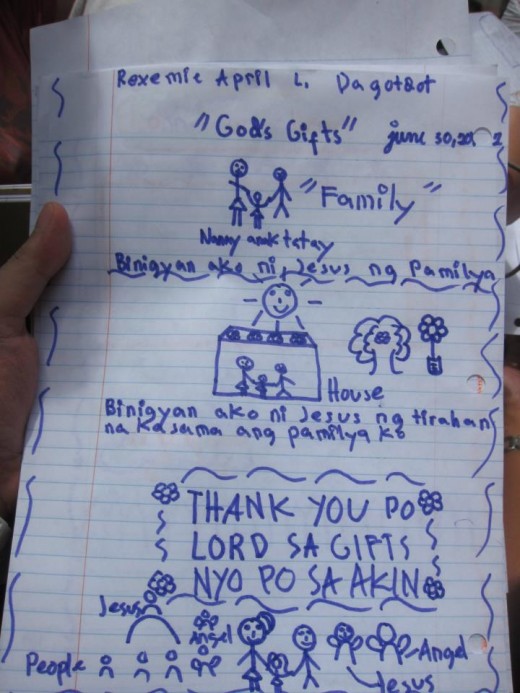 Rexemie April L. Dagotdot
"God's Gifts" june 30, 20 2
"Family"
Nanay anak tatay
Binigyan ako ni Jesus ng Pamilya
House
Binigyan ako ni Jesus ng tirahan
na kasama ang pamilya ko
THANK YOU PO
LORD SA GIFTS
NYO PO SA AKIN
Jesus
Angel
People
Angel
Jesus